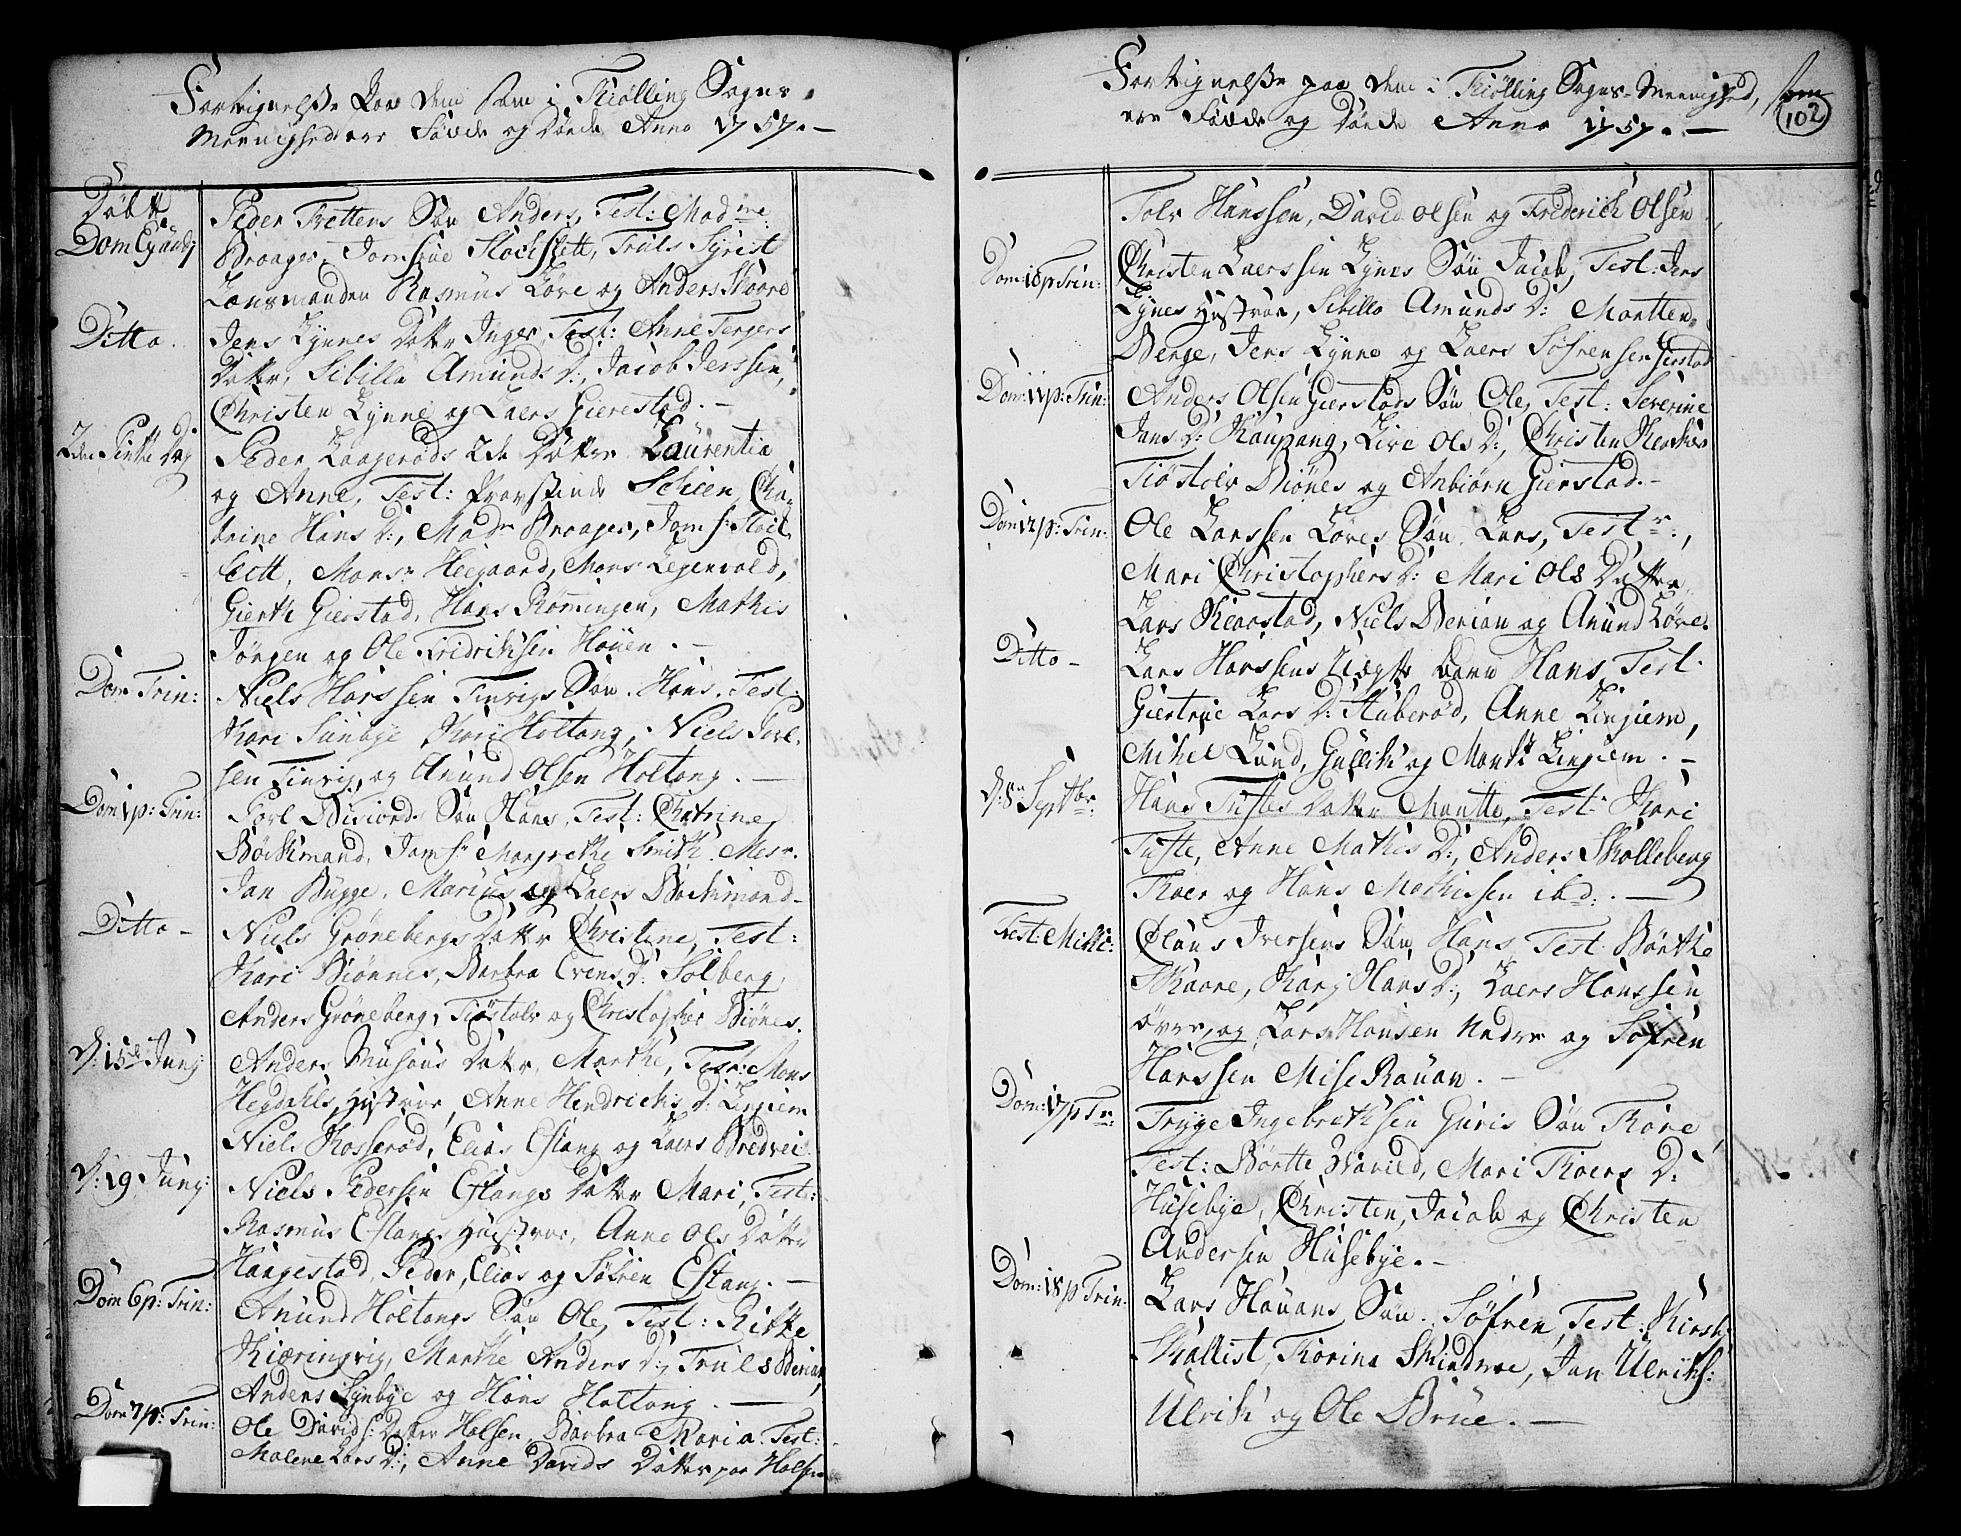 Fortegnelse Paa dem som i Tiølling Sogns
Menighed ere Føde og Døde Anno 1757. —
Døbt
Dom Exaudj
Peder Frettens Søn Anders, Test: Madme
Braager, Jomfrue Stockflett, Truls Syrist
Lensmanden Rasmus Løve og Anders Skaare
Ditto.
Jens Lynnes Datter Inger, Test: Anne Tergers
Datter, Sibilla Amunds D:, Jacob Jenssen,
Christen Lynne og Laers Gierestad. —
2den Pintze Dag
Peder Laagerøds 2de Døttre Laurentia
og Anne, Test: Provstinde Schien, Cha-
trine Hans D:, Madm Braager, Jomf: Stock
flett, Monsr Heegaard, Monsr Legenvald,
Gierth Gierstad, Hans Rømmingen, Mathis
Jørgen og Ole Fridrichsen Houen. —
Dom Trin:
Niels Hanssen Tinvigs Søn Hans, Test:
Kari Sunbye Kari Holtang, Niels Povel
sen Tinvig, og Anund Olsen Holtang. —
Dom 1 p: Trin:
Povl Bisiords Søn Hans, Test: Chatrine
Böckmand, Jomfr Margrethe Smith, Mesr.
Jan Bugge, Marius og Laers Bockmand —
Ditto —
Niels Grønebergs Datter Christine, Test:
Kari Biønnes, Barbra Evens D: Solberg,
Anders Grøneberg, Tiøstolv og Christopher Biønes.
D: 15de Junj
Anders Musøus Datter Marthe, Test: Mons
Hegdahls Hustrue, Anne Hendrichs D: Linjiem
Niels Kosserød, Elias Eftang og Laers Bredvei
D: 19 Junj:
Niels Pedersen Eftangs Datter Mari, Test:
Rasmus Eftangs Hustrue, Anne Ols Datter
Haagestad, Peder, Elias og Søfren Eftang. —
Dom 6 p: Trin:
Anund Holtangs Søn Ole, Test: Rikke
Kiæringvig, Marthe Anders D:, Truls Berian,
Anders Synbye og Hans Holtang. —
Dom 7 p: Trin:
Ole Davids: Datter Halsen, Barbra Maria. Test:
Malene Lars D:, Anne Davids Datter paa Halsen
Fortegnelse paa dem i Tiølling Sogns-Menighed, som
ere Føde og Døde Anno 1757. —
102
Tolv Hanssen, David Olsen og Friderich Olsen
Dom: 10 p Trin:
Christen Laerssen Lynes Søn Jacob, Test: Jens
Lynes Hustrue, Sibilla Amunds D: Marthe
Berge, Jens Lynne og Laers Søfrensen Gierstad
Dom: 11 p: Trin:
Anders Olsen Gierstads Søn Ole, Test: Severine
Jans D: Kaupang, Live Ols D:, Christen
Tiøstolv Biønes og Anbiørn Gierstad. —
Dom 12 p: Trin:
Ole Larssen Løves Søn Lars, Testr:,
Mari Christophers D: Mari Ols Datter
Lars Kiaerstad, Niels Berian og Anund Løve.
Ditto —
Lars Hanssens Uægte Barn Hans, Test:
Giertrue Lars D: Huberød, Anne Linjiem,
Mikel Lund, Gullik og Marthe Linjiem. —
D: 8de Septbr:
Hans Tuftes Datter Marthe, Test: Kari
Tufte, Anne Mathis D:, Anders Skolleberg
Thoer og Hans Mathissen ibd:. —
Fest: Mich:
Claus Iversens Søn Hans Test: Børthe
Skaare, Karj Hans D:, Laers Hanssen
øvre, og Lars Hansen Nedre og Søfren
Hanssen Mise Rauan. —
Dom: 17 p Trn:
Tryge Ingebrethsen Guris Søn Tore,
Test: Børtte Varild, Mari Thoers D:
Husebye, Christen, Jacob og Christen
Andersen Husebye. —
Dom: 18 p Trin:
Lars Hauans Søn Søfren, Test: Kirst:
Skallist, Torina Skindmoe, Jan Ulrichs:
Ulrich og Ole Brue. —